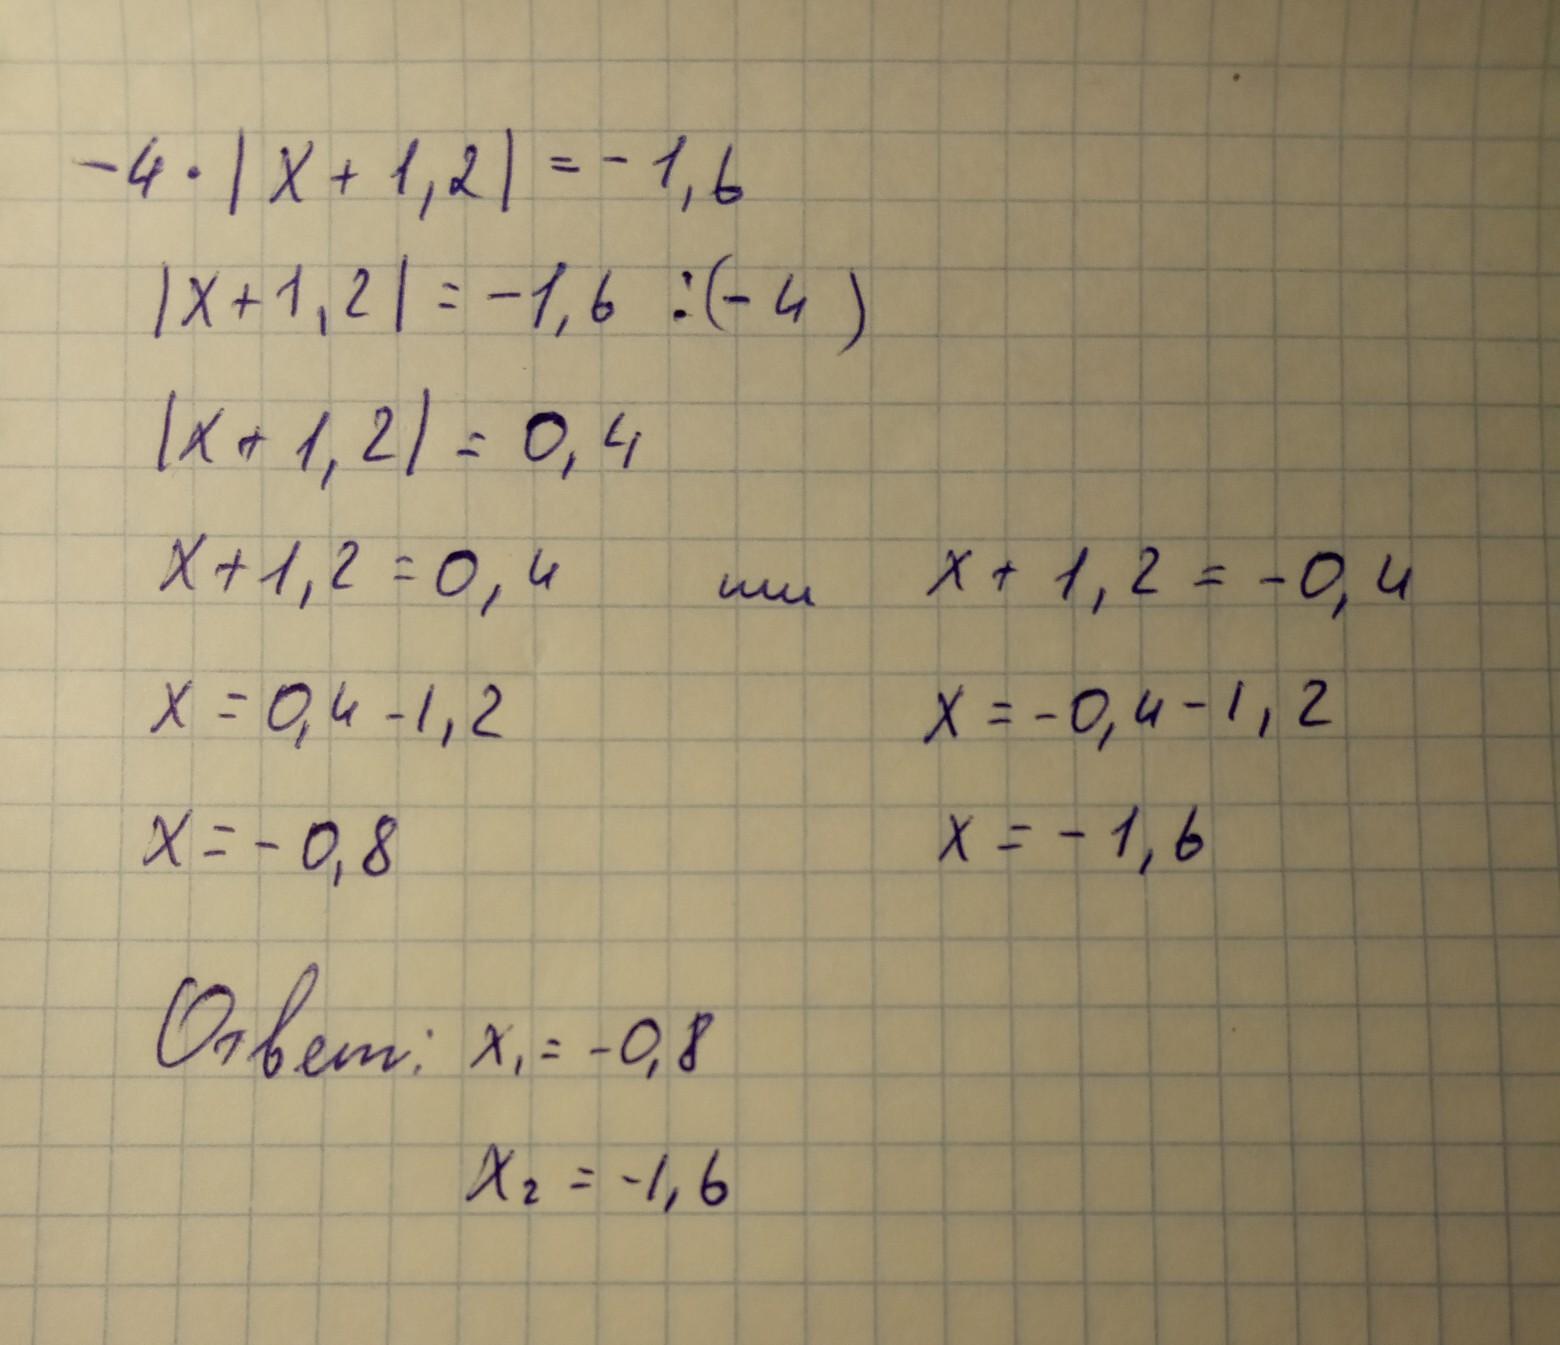 -4·|x+1,2|=-1,6
|x+1,2|=-1,6:(-4)
|x+1,2|=0,4
x+1,2=0,4 или x+1,2=-0,4
x=0,4-1,2 x=-0,4-1,2
x=-0,8 x=-1,6
Ответ: x₁=-0,8
x₂=-1,6